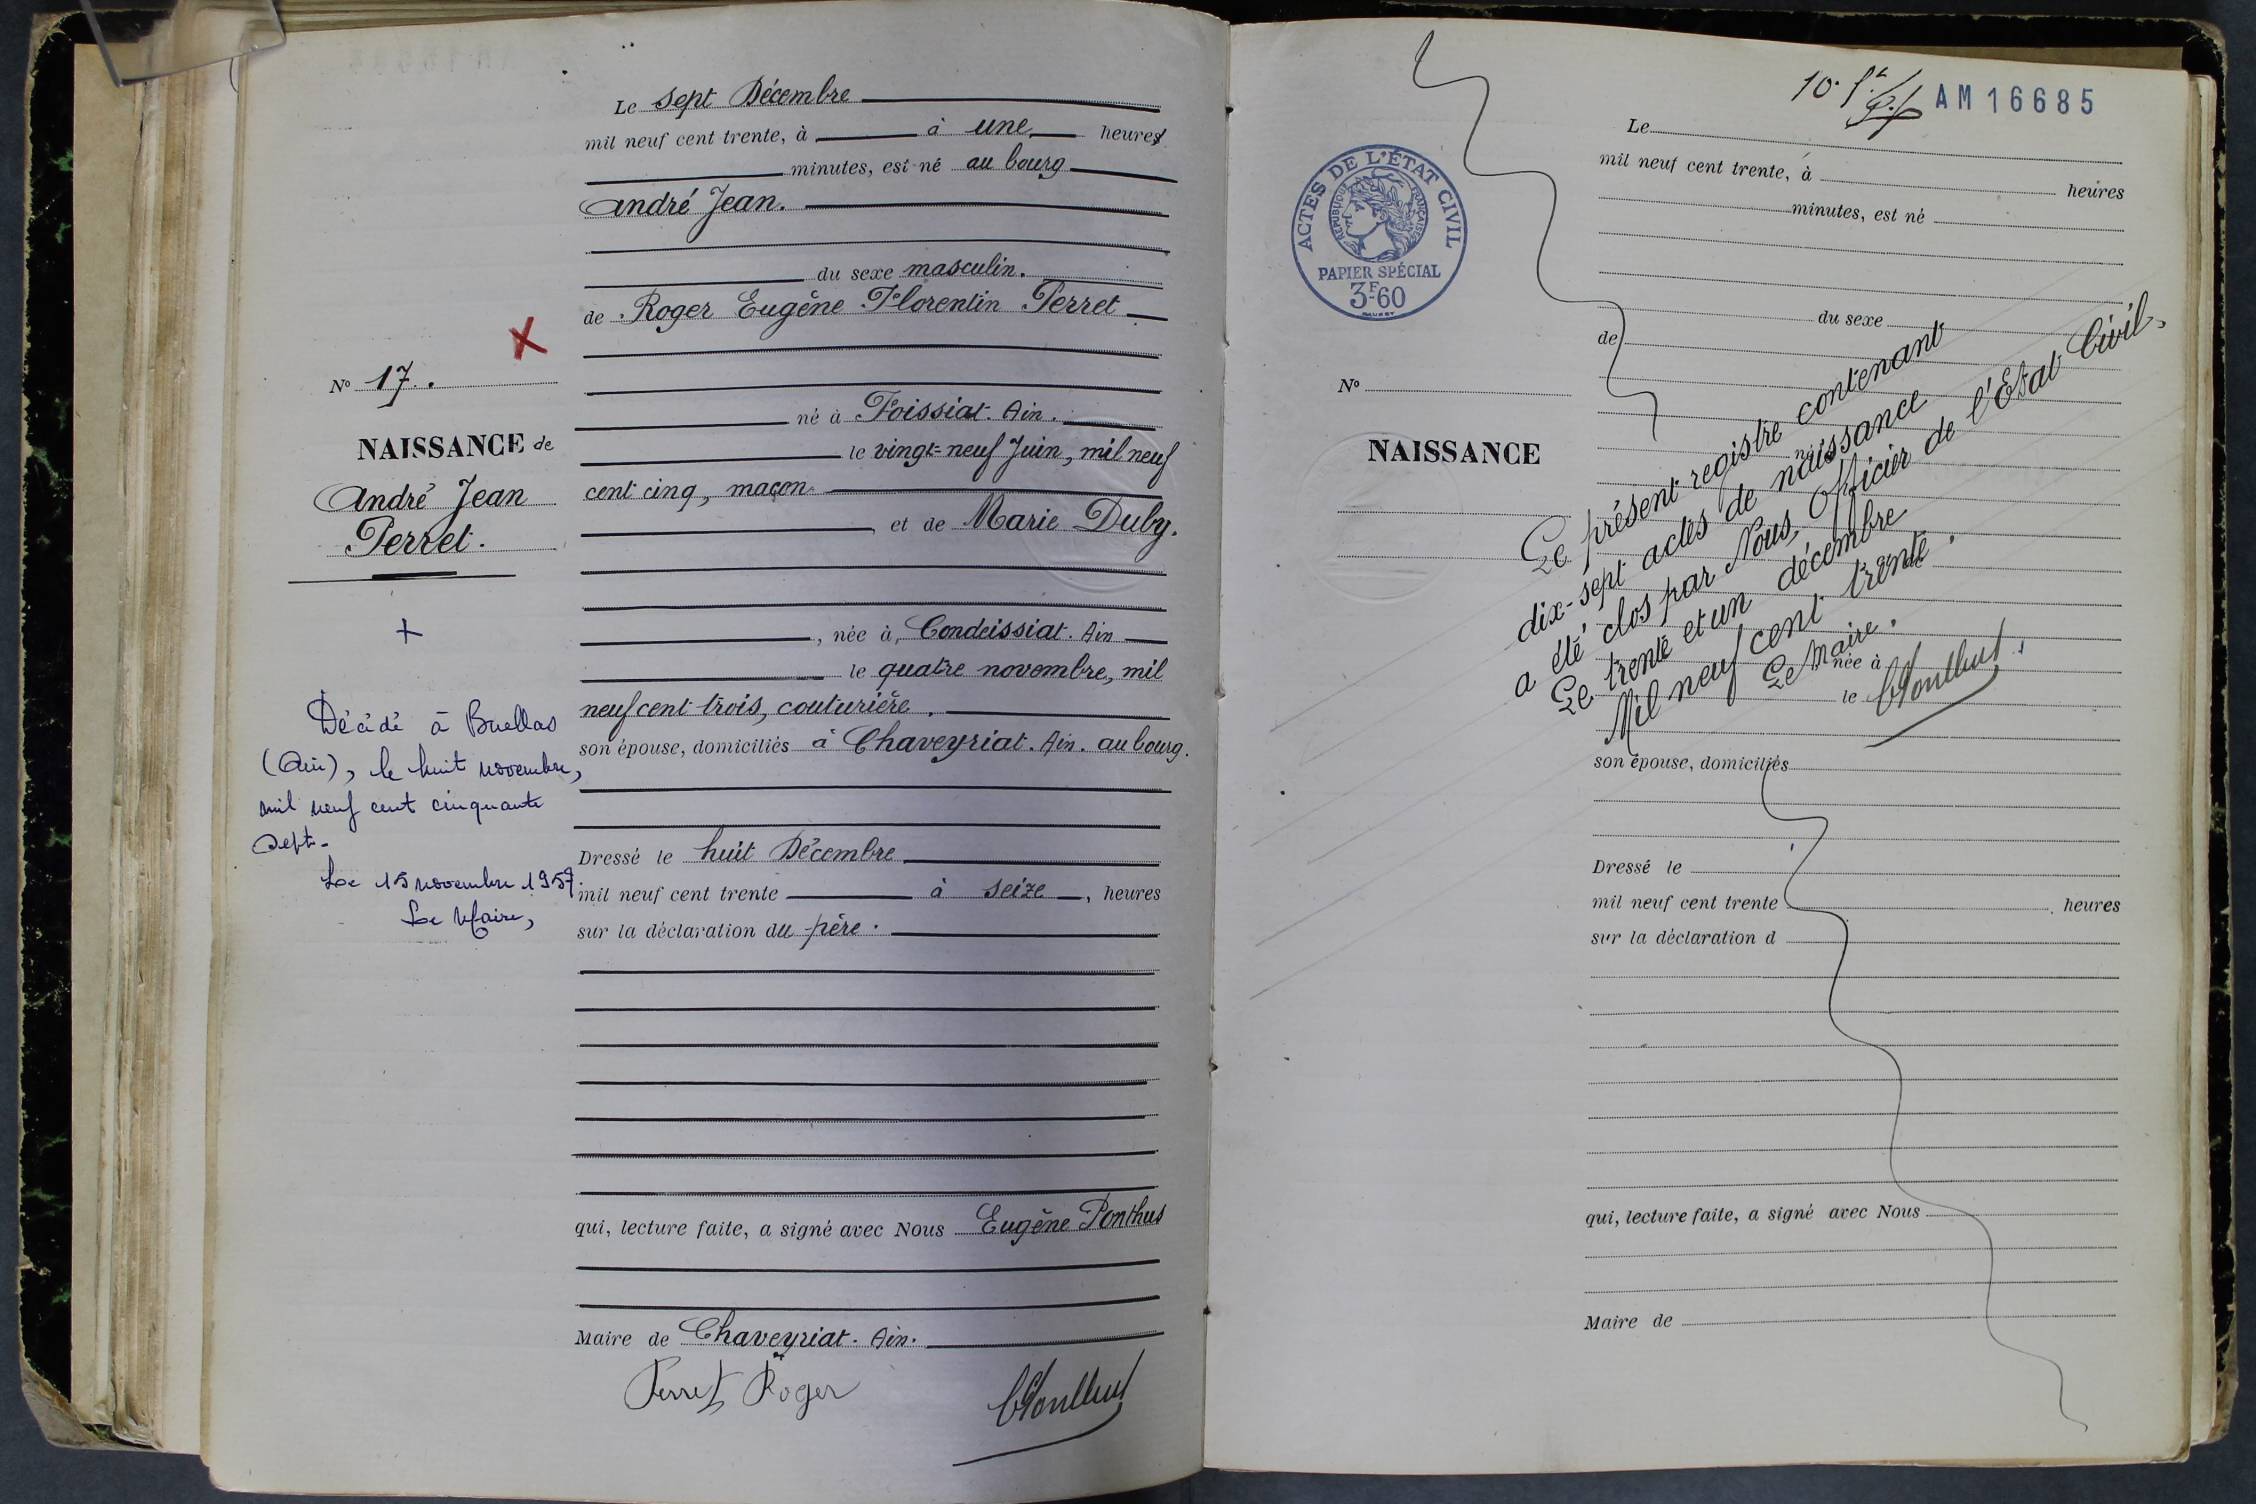 Le sept Décembre
mil neuf cent trente, à à une heures
minutes, est né au bourg
André Jean.
du sexe masculin.
de Roger Eugène Florentin Perret
né à Foissiat. Ain.
le vingt-neuf Juin, mil neuf
cent cinq, maçon
et de Marie Duby.
, née à, Condeissiat. Ain
le quatre novembre, mil
neuf cent trois, couturière.
son épouse, domiciliés à Chaveyriat. Ain. au bourg.
Dressé le huit Décembre
mil neuf cent trente à seize, heures
sur la déclaration du père.
qui, lecture faite, a signé avec Nous Eugène Ponthus
Maire de Chaveyriat. Ain.
Perret Roger
N° 17.
NAISSANCE de
André Jean
Perret.
Décédé à Buellas
(Ain), le huit novembre,
mil neuf cent cinquante
sept.
Le 15 novembre 1957
Le Maire,
AM16685
ACTES DE L'ÉTAT CIVIL
RÉPUBLIQUE FRANÇAISE
PAPIER SPÉCIAL
3F60
Le
mil neuf cent trente, à heures
minutes, est né
du sexe
de
N°
NAISSANCE
né
Le présent registre contenant
dix-sept actes de naissance
a été clos par Nous, Officier de l'Etat Civil,
Le trente et un décembre
Mil neuf cent trente.
Le Maire.
et de
née à
le
son épouse, domiciliés
Dressé le
mil neuf cent trente heures
sur la déclaration d
qui, lecture faite, a signé avec Nous
Maire de